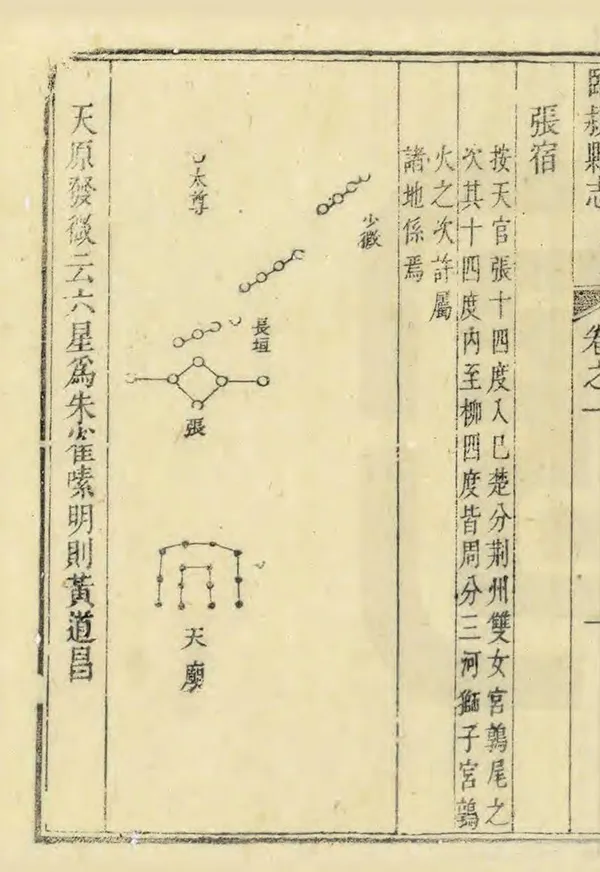 縣志
卷之一
一
張宿
按天官張十四度入巳楚分荆州雙女宮鶉尾之
次其十四度内至柳四度皆周分三河獅子宮鶉
火之次許屬
諸地係焉
少微
長垣
太尊
張
天廟
天原發微云六星爲朱雀嗉明則黃道昌